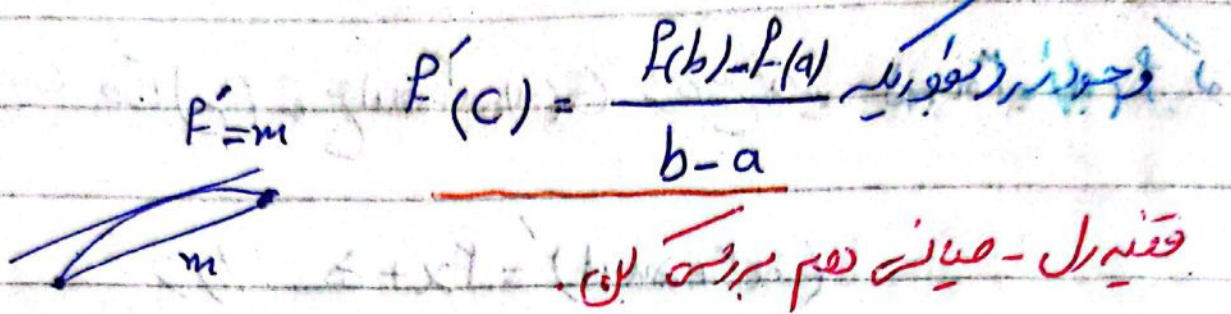 وجود دارد بطوریکه f′(c) = f(b) - f(a) / b - a
f′ = m
m
قضیه رل - میانی دهم بررسی کن.